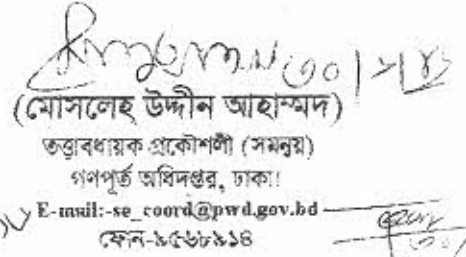 ৩০|১|১৪
(মোসলেহ উদ্দীন আহাম্মদ)
তত্ত্বাবধায়ক প্রকৌশলী (সমন্বয়)
গণপূর্ত অধিদপ্তর, ঢাকা।
E-mail:-se_coord@pwd.gov.bd
ফোন-৯৫৬৮৯১৪